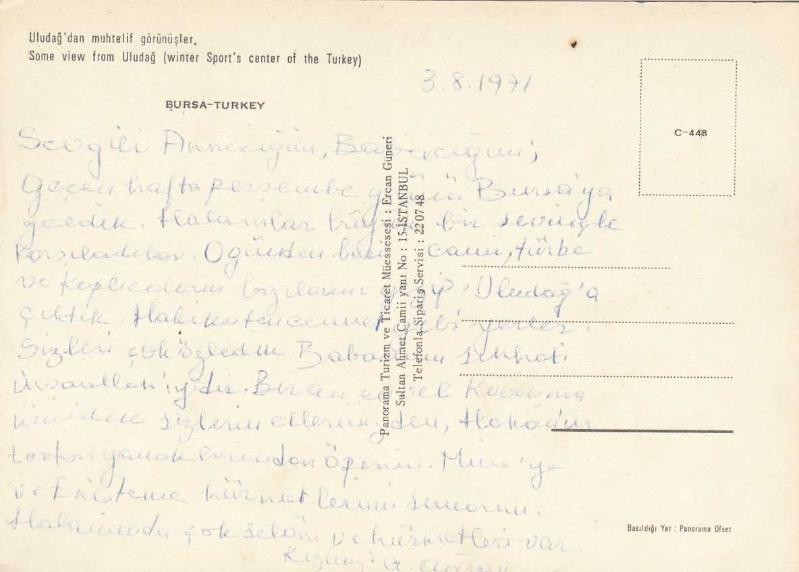 Uludağ'dan muhtelif görünüşler.
Some view from Uludağ (winter Sport's center of the Turkey)
BURSA-TURKEY
3.8.1971
C-448
Sevgili Anneciğim, Babacığım;
Geçen hafta perşembe günü Bursa'ya
geldik. Halamlar büyük bir sevinçle
karşıladılar. O günden beri cami, türbe
ve kaplıcaların bazılarını gezip, Uludağ'a
çıktık. Hakikaten cennet gibi yerler.
Sizleri çok özledim. Babacığım sıhhati
inşaallah iyidir. Biran evvel
sizlerin ellerinizden, Hakan'ın
tonton yanaklarından öperim. Mine'ye
ve Enişteme hürmetlerimi sunarım.
Halamında çok selâm ve hürmetleri var.
Kızınız
Panorama Turizm ve Ticaret Müessesesi : Ercan Güneri
Sultan Ahmet Camii yanı No : 15-İSTANBUL
Telefonla Sipariş Servisi : 22 07 48
Basıldığı Yer : Panorama Ofset